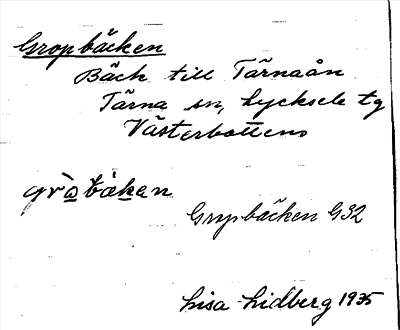 Gropbäcken
Bäck till Tärnaån
Tärna sn, Lycksele tg
Västerbottens
Gropbäcken G32
Lisa Lidberg 1935